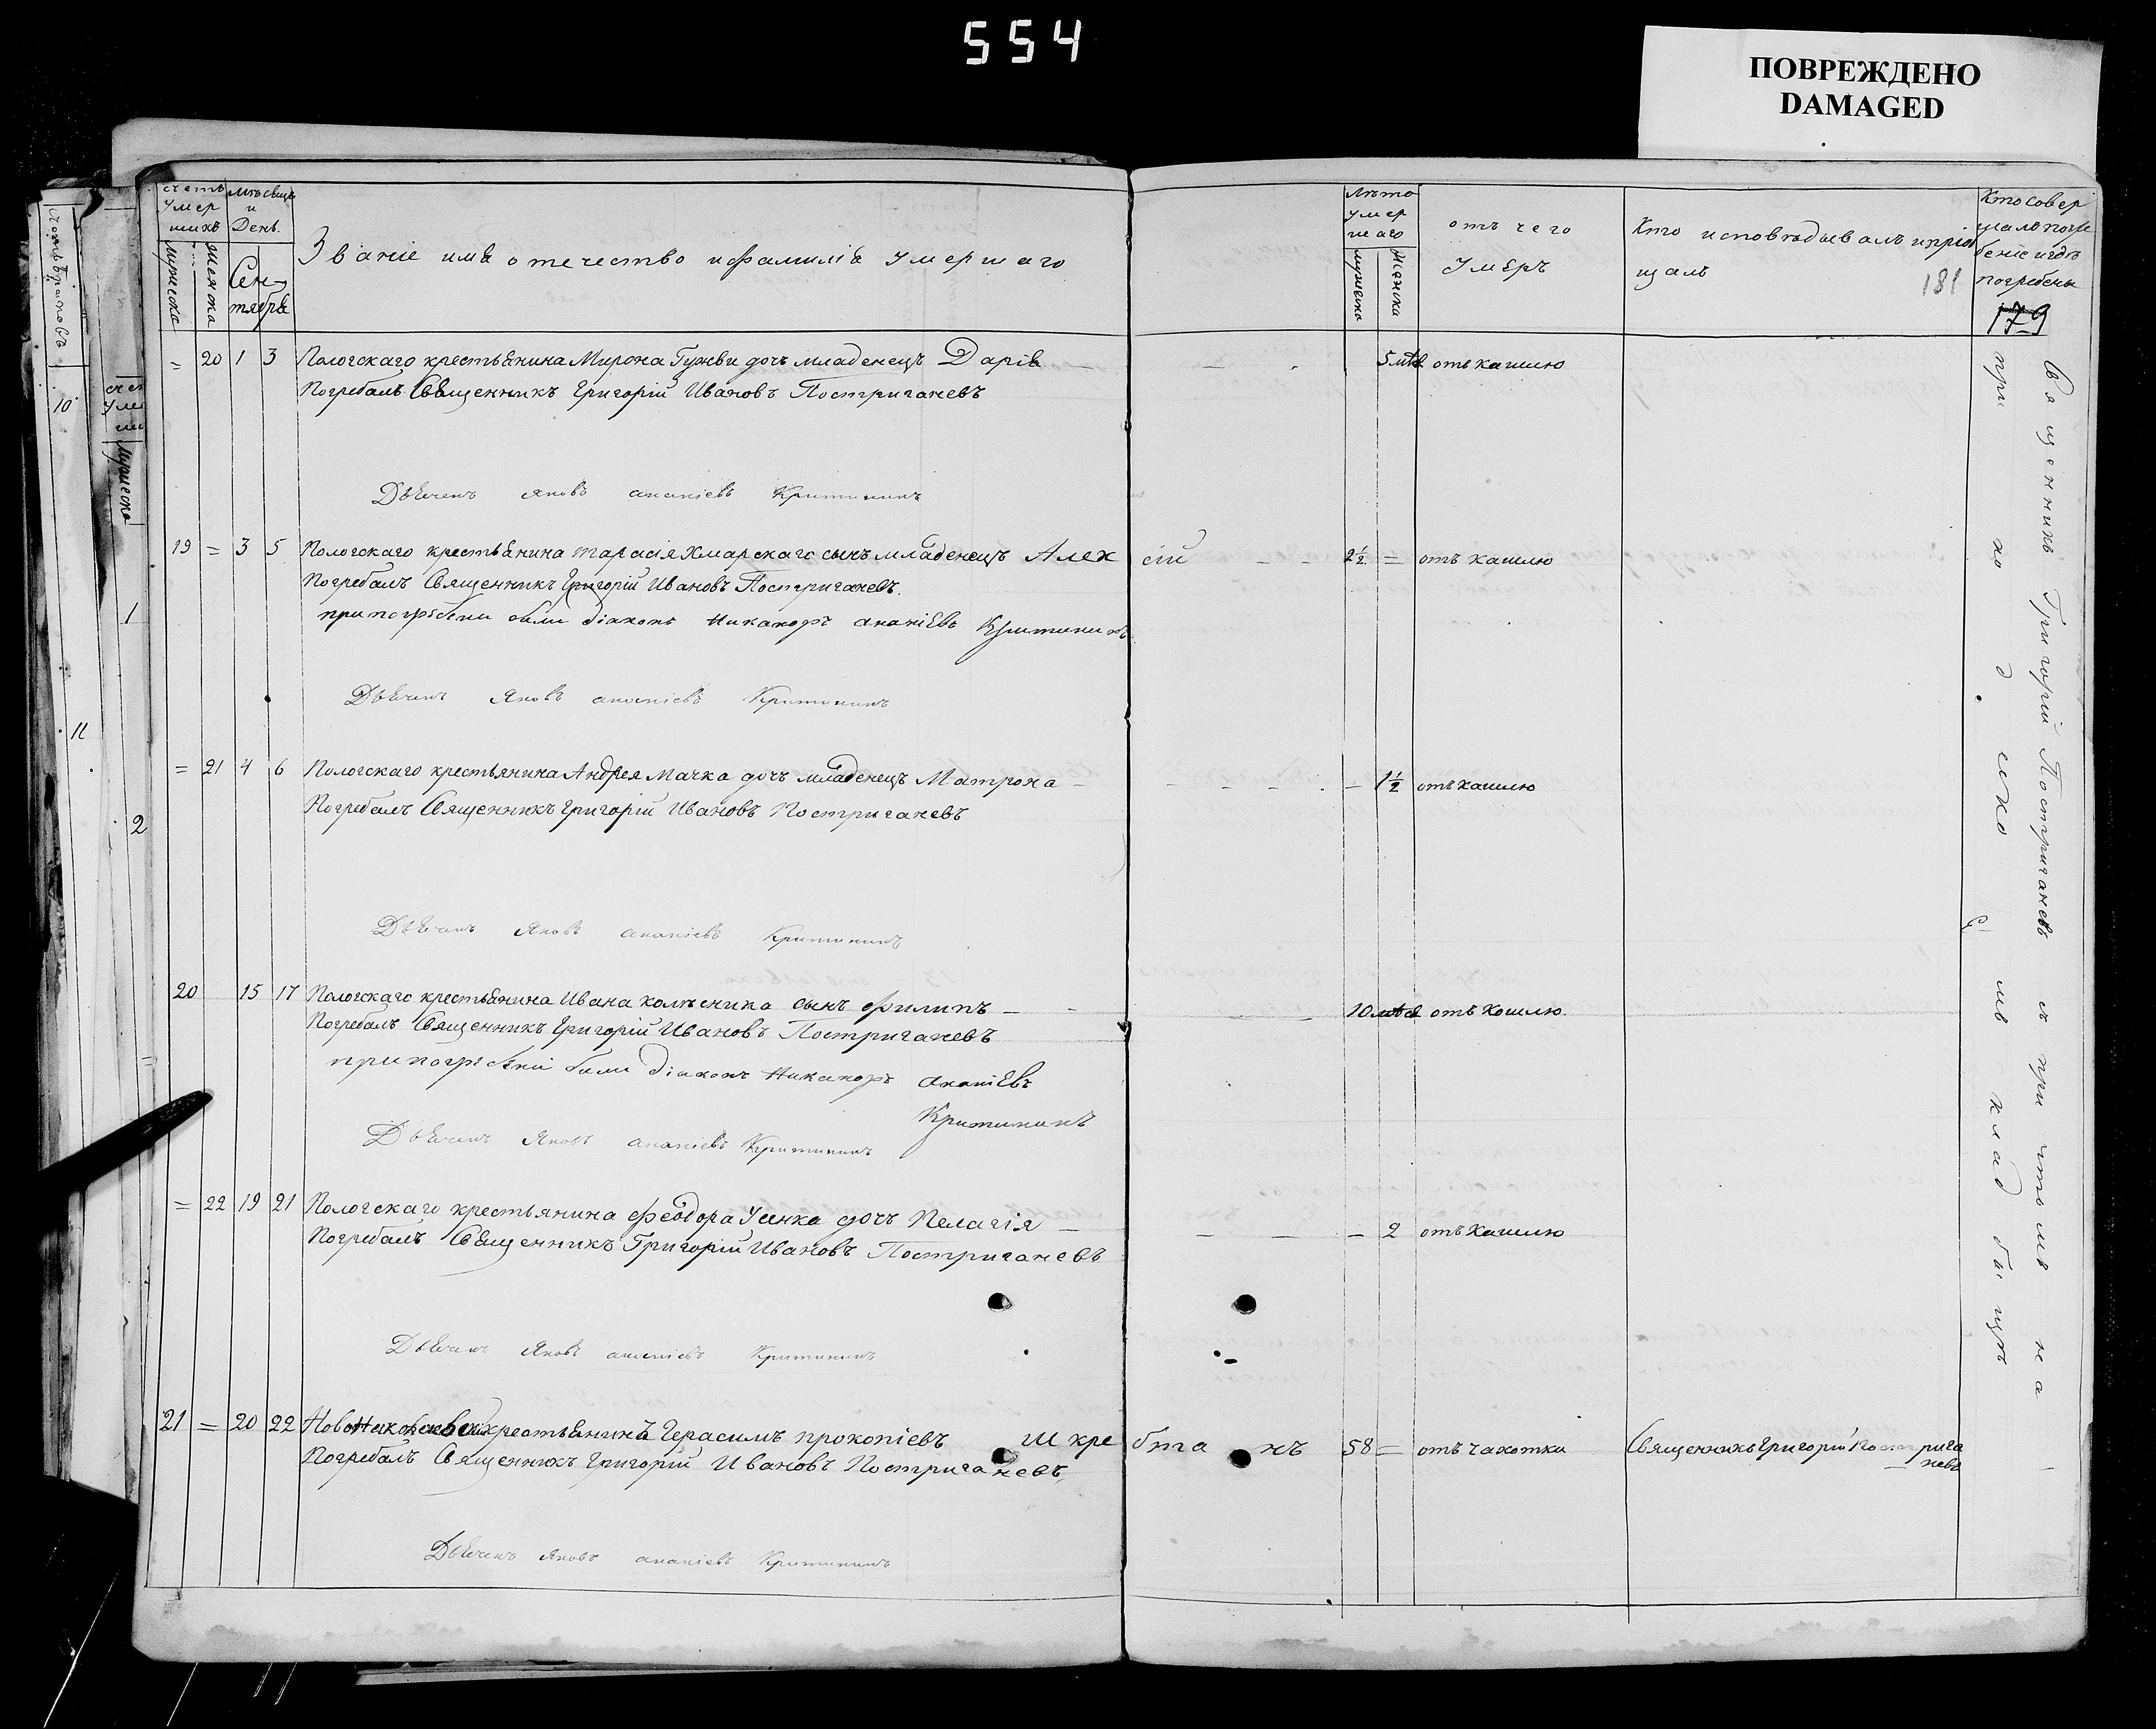 554
ПОВРЕЖДЕНО
DAMAGED
счетъ умершихъ
мѣсяцъ и День.
мужеска
женска
Сентября
Званіе имя отечество ифамилія умершаго
Лѣто умершаго
мужеска
женска
отъ чего умеръ
Кто исповѣдывалъ ипріобщалъ
181
Кто совершалъ погребеніе игдѣ погребены
179
= 20 1 3 Пологскаго крестьянина Мирона Гужви дочь младенецъ Дарія 5 мѣс отъ кашлю
Погребалъ Священникъ Григорій Ивановъ Постригачевъ
Дьячекъ Яковъ ананіевъ Критининъ
19 = 3 5 Пологскаго крестьянина тарасія Хмарскаго сынъ младенецъ Алексій 2½ = отъ кашлю
Погребалъ Священникъ Григорій Ивановъ Постригачевъ.
при погребени были діаконъ Никаноръ ананіевъ Критининъ
Дьячекъ Яковъ ананіевъ Критининъ
= 21 4 6 Пологскаго крестьянина Андрея Мачка дочь младенецъ Матрона – – 1½ отъ кашлю
Погребалъ Священникъ Григорій Ивановъ Постригачевъ
Дьячекъ Яковъ ананіевъ Критининъ
20 15 17 Пологскаго крестьянина Ивана колѣсника сынъ филипъ – 10 мѣс отъ кошлю.
Погребалъ Священникъ Григорій Ивановъ Постригачевъ
при погребени были діаконъ Никаноръ ананіевъ
Критининъ
Дьячекъ Яковъ ананіевъ Критининъ
= 22 19 21 Пологскаго крестьянина феодора Усенка дочь Пелагія – – 2 отъ кашлю
Погребалъ Священникъ Григорій Ивановъ Постригачевъ
Дьячекъ Яковъ ананіевъ Критининъ
21 = 20 22 крестьянинъ Герасимъ прокопіевъ Шкребтанъ 58 = отъ чахотки Священникъ Григорій Постригачевъ
Погребалъ Священникъ Григорій Ивановъ Постригачевъ
Дьячекъ Яковъ ананіевъ Критининъ
Священникъ Григорій Постригачевъ и причтомъ на
приходском кладбищѣ
10
11
1
2